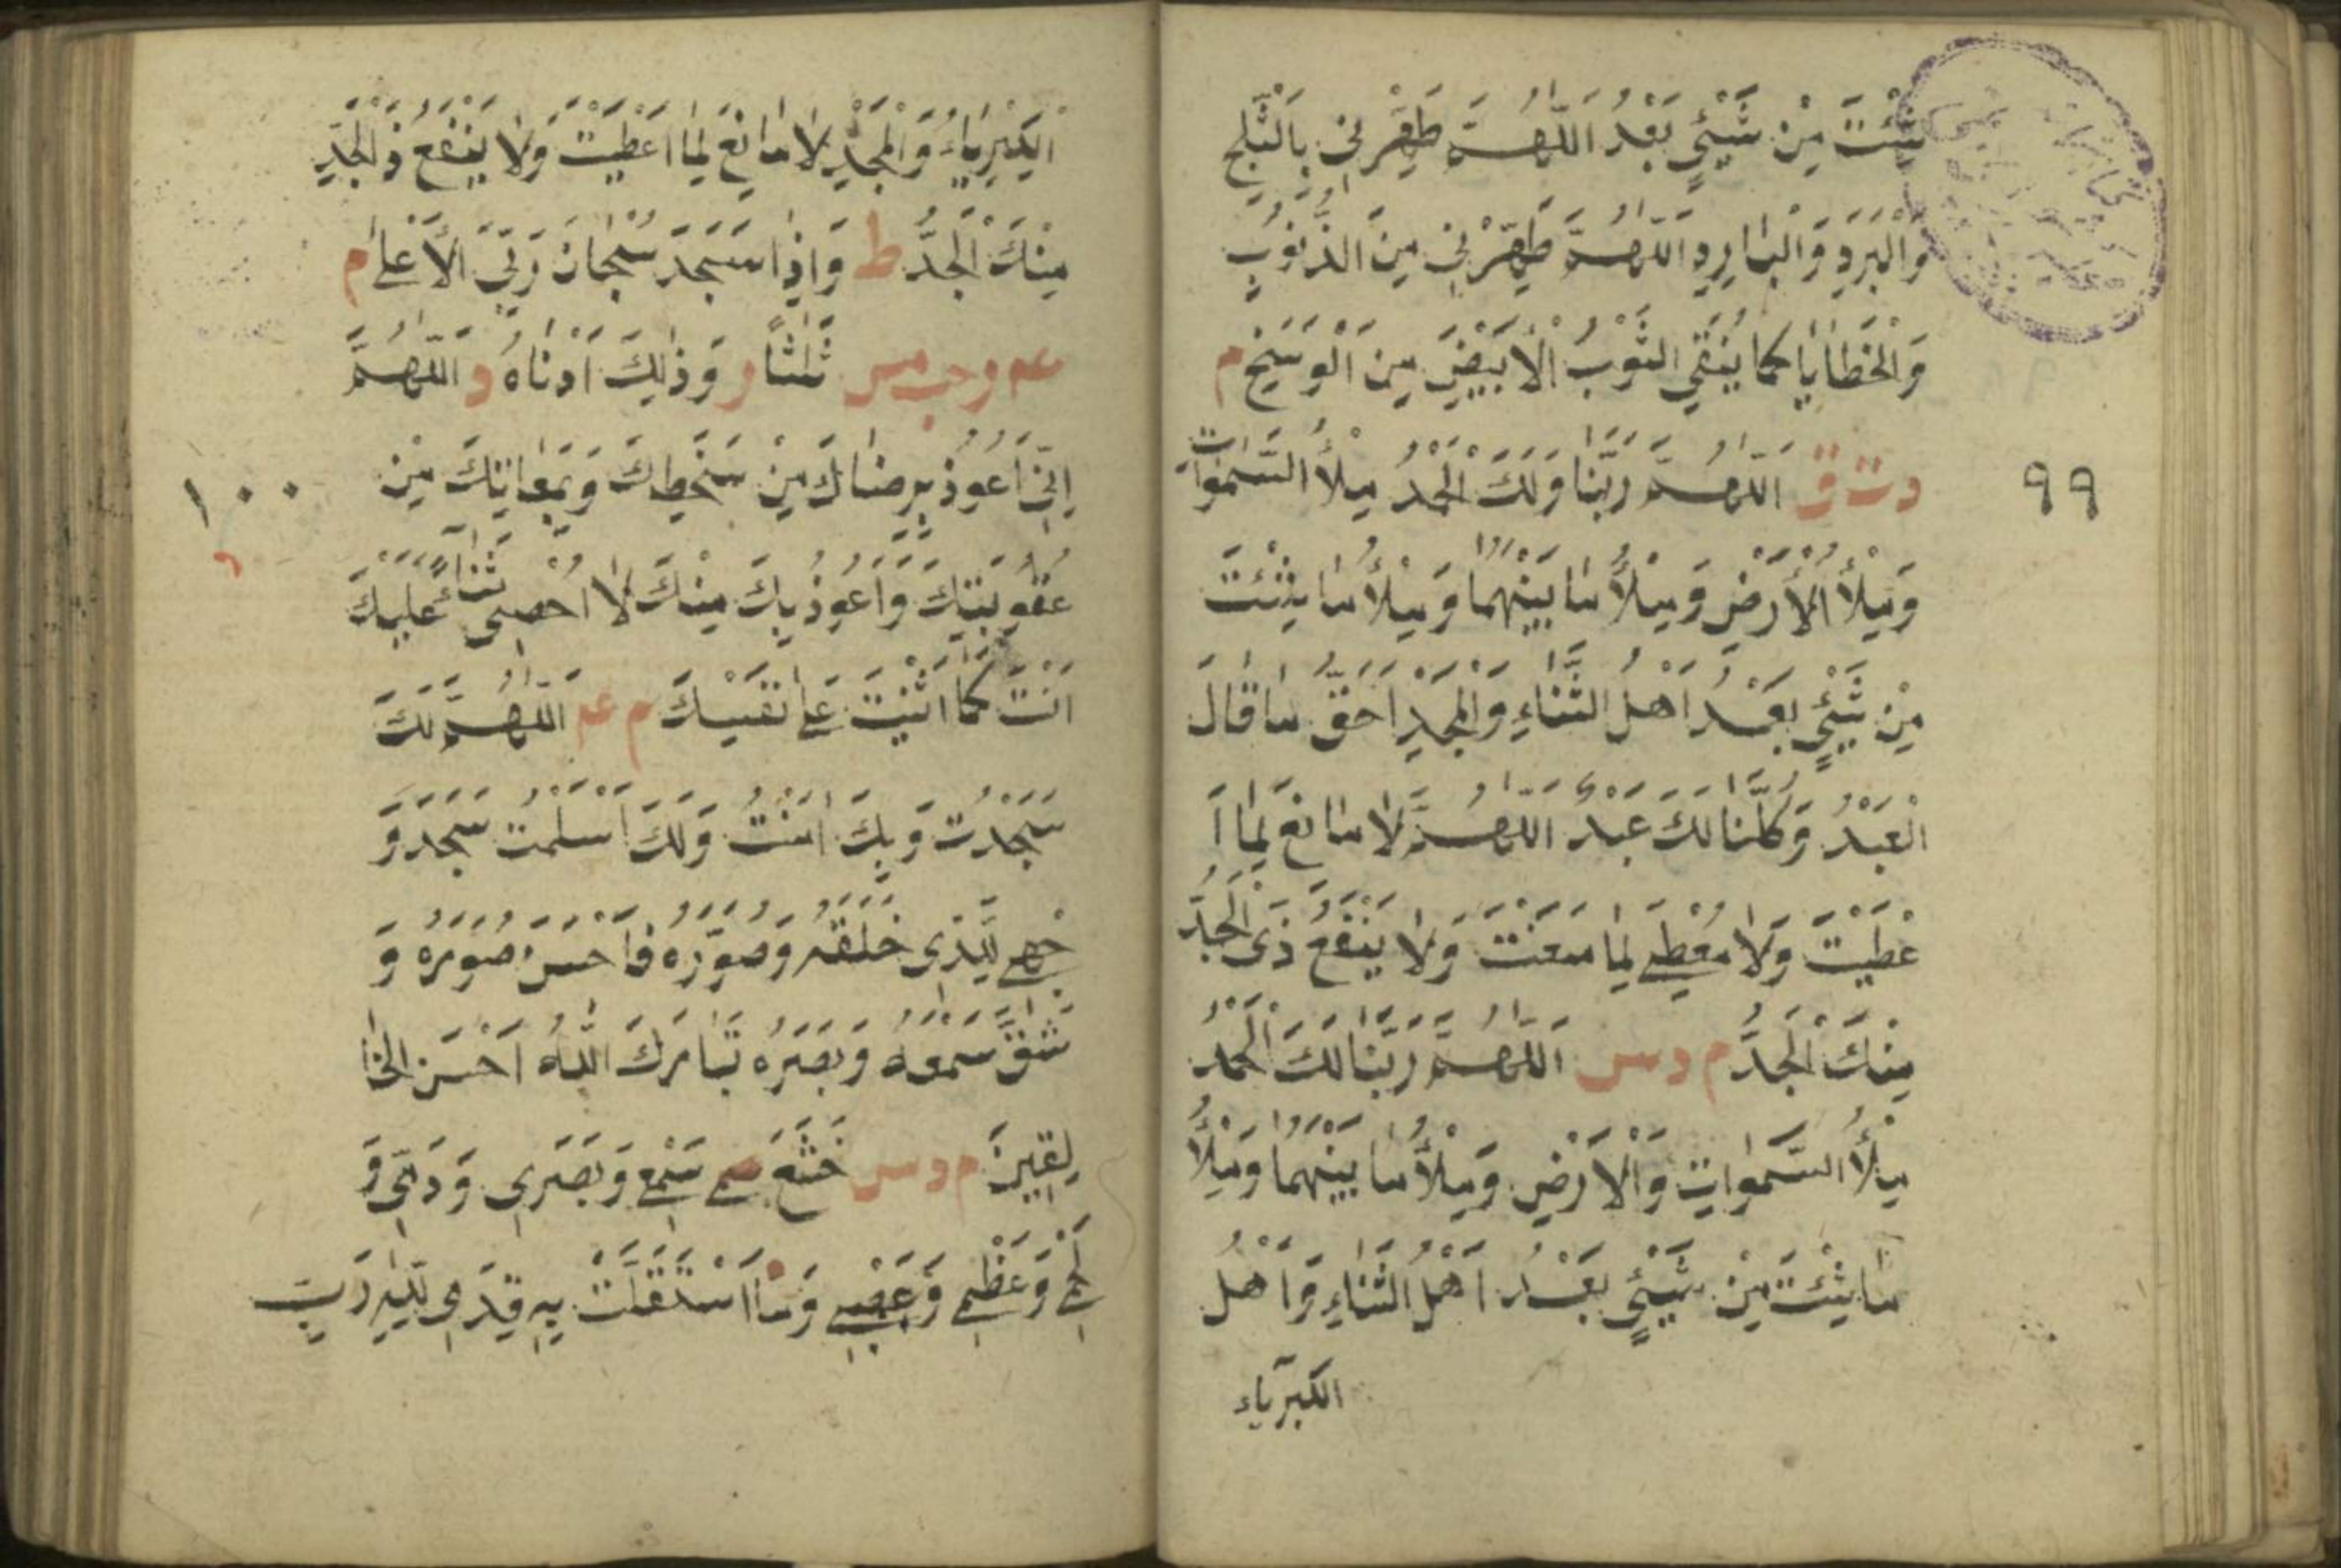 شِئْتَ مِنْ شَيْئٍ بَعْدُ اَللّٰهُمَّ طَهِّرْنِى بِالثَّلْجِ
وَالْبَرَدِ وَالْبَارِدِ اَللّٰهُمَّ طَهِّرْنِى مِنَ الذُّنُوبِ
وَالْخَطَايَا كَمَا يُنَقَّى الثَّوْبُ الْاَبْيَضُ مِنَ الْوَسَخِ م
د ت ق اَللّٰهُمَّ رَبَّنَا وَلَكَ الْحَمْدُ مِلْأُ السَّمٰوَاتِ
٩٩
وَمِلْأُ الْأَرْضِ وَمِلْأُ مَا بَيْنَهُمَا وَمِلْأُ مَا شِئْتَ
مِنْ شَيْئٍ بَعْدُ اَهْلُ الثَّنَاءِ وَالْمَجْدِ اَحَقُّ مَا قَالَ
الْعَبْدُ وَكُلُّنَا لَكَ عَبْدٌ اَللّٰهُمَّ لَا مَانِعَ لِمَا اَ
عْطَيْتَ وَلَا مُعْطِىَ لِمَا مَنَعْتَ وَلَا يَنْفَعُ ذَى الْجَدُّ
مِنْكَ الْجَدُّ م د س اَللّٰهُمَّ رَبَّنَا لَكَ الْحَمْدُ
مِلْأُ السَّمٰوَاتِ وَالْاَرْضِ وَمِلْأُ مَا بَيْنَهُمَا وَمِلْأُ
مَا شِئْتَ مِنْ شَيْئٍ بَعْدُ اَهْلُ الثَّنَاءِ وَاَهْلُ
الكبرياء
اَلْكِبْرِيَاءِ وَالْمَجْدِ لَا مَانِعَ لِمَا اَعْطَيْتَ وَلَا يَنْفَعُ ذَ الْجَدِّ
مِنْكَ الْجَدُّ ط وَاِذَا سَجَدَ سُبْحَانَ رَبِّىَ الْاَعْلٰى م
عه و حب مس ثَلٰثًا ر وَذٰلِكَ اَدْنَاهُ د اَللّٰهُمَّ
اِنِّى اَعُوذُ بِرِضَاكَ مِنْ سَخَطِكَ وَبِمُعَافَاتِكَ مِنْ
١٠٠
عُقُوبَتِكَ وَاَعُوذُ بِكَ مِنْكَ لَا اُحْصِى ثَنَاءً عَلَيْكَ
اَنْتَ كَمَا اَثْنَيْتَ عَلٰى نَفْسِكَ م عه اَللّٰهُمَّ لَكَ
سَجَدْتُ وَبِكَ اٰمَنْتُ وَلَكَ اَسْلَمْتُ سَجَدَ وَ
جْهِى لِلَّذِى خَلَقَهُ وَصَوَّرَهُ فَاَحْسَنَ صُوَرَهُ وَ
شَقَّ سَمْعَهُ وَبَصَرَهُ تَبَارَكَ اللّٰهُ اَحْسَنُ الْخَا
لِقِينَ م د س خَشَعَ سَمْعِى وَبَصَرِى وَدَمِى وَ
لَحْمِى وَعَظْمِى وَعَصَبِى وَمَا اسْتَقَلَّتْ بِهِ قَدَمِى لِلّٰهِ رَبِّ